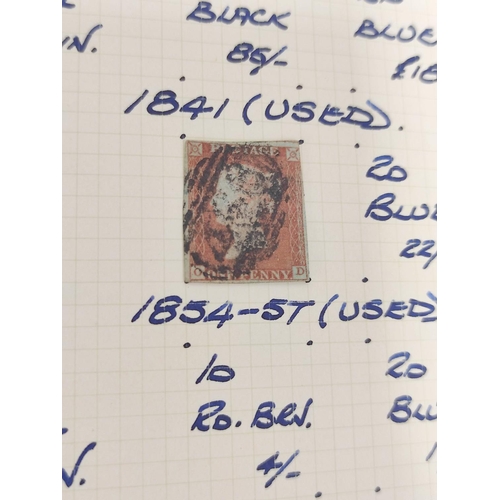 BLACK BLUE
N. 85/- £18
1841 (USED).
POSTAGE
20
BLUE
O ONE PENNY D
22/
1854-57 (USED)
10 20
RD. BRN. BLU
N. 4/-